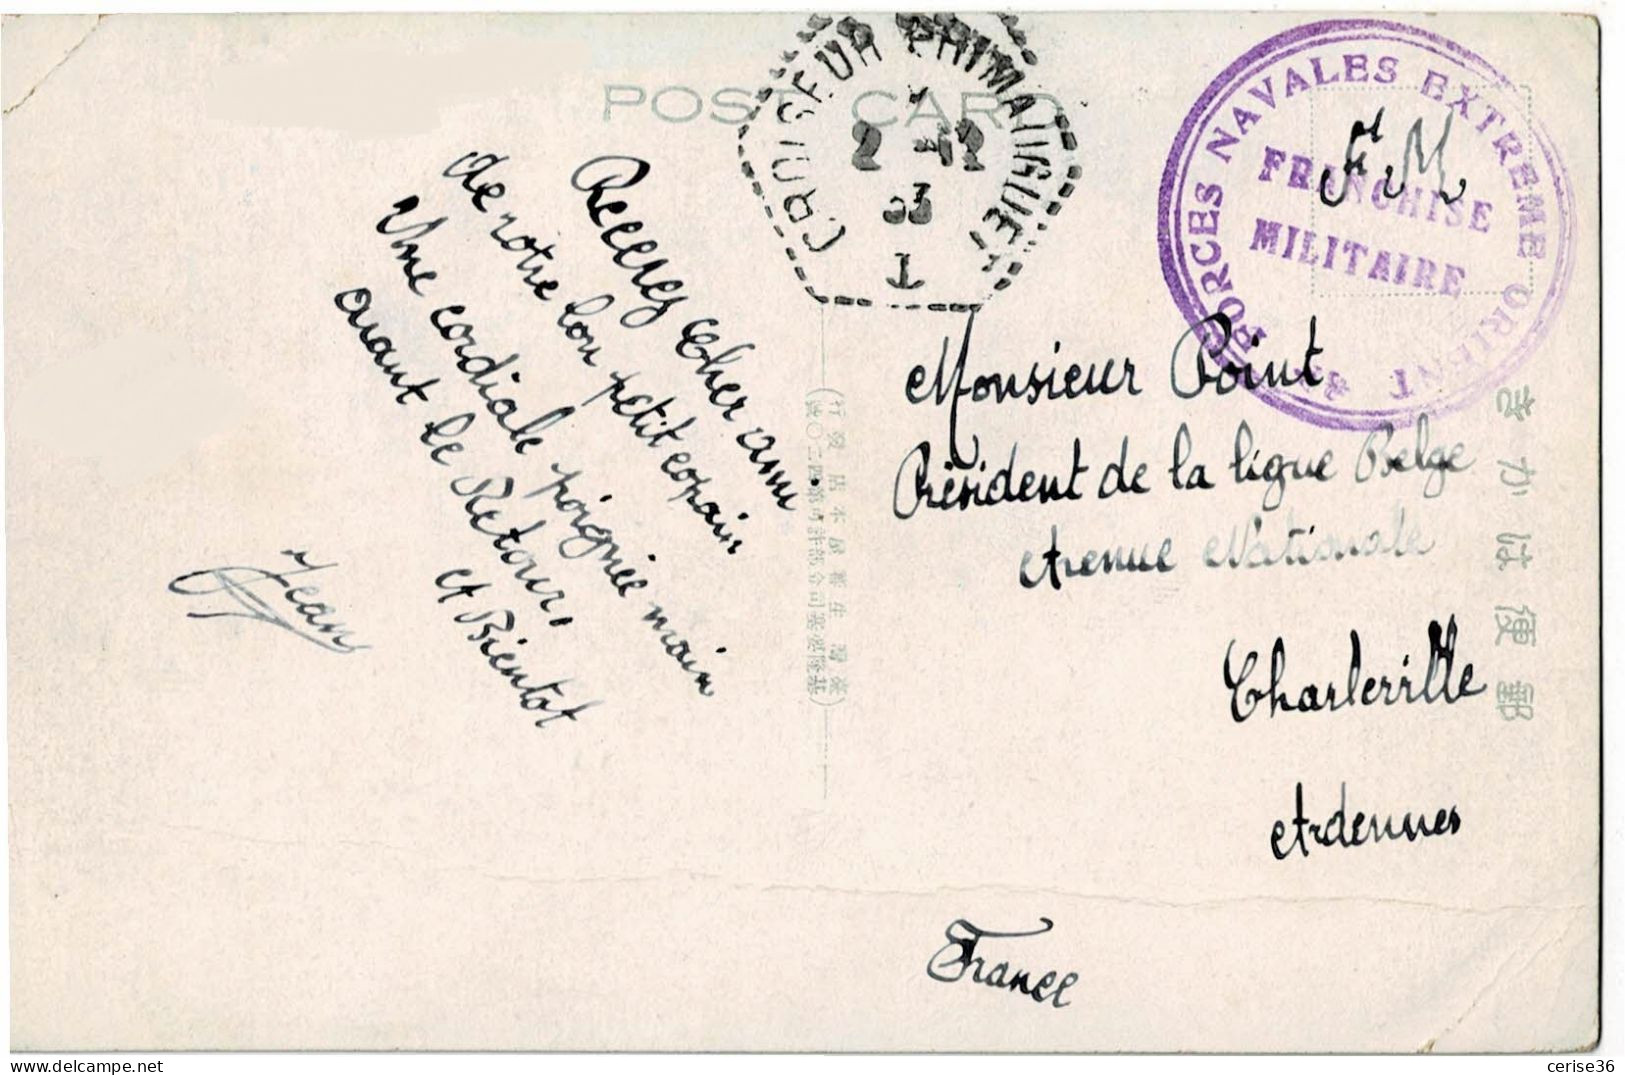 POST CARD
CROISEUR PRIMAUGUET
2 -12
33
FORCES NAVALES EXTREME ORIENT
FRANCHISE
MILITAIRE
F.M
Recevez cher ami
de votre bon petit copain
Une cordiale poignée main
avant le Retour,
et Bientot
Jean
Monsieur Point
Président de la ligue Belge
Avenue Nationale
Charleville
Ardennes
France
きかは便郵
(行發店本屋番生灣臺)
cerise36